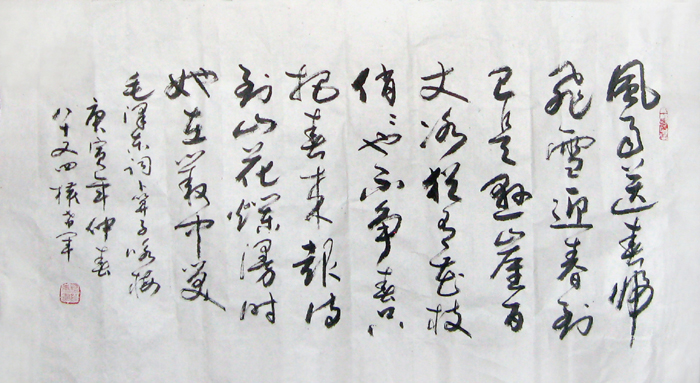 風雨送春歸
飛雪迎春到
已是懸崖百
丈冰猶有花枝
俏〻也不爭春只
把春来報待
到山花爛漫时
她在叢中笑
毛澤东词卜算子咏梅
庚寅年仲春
八十又四